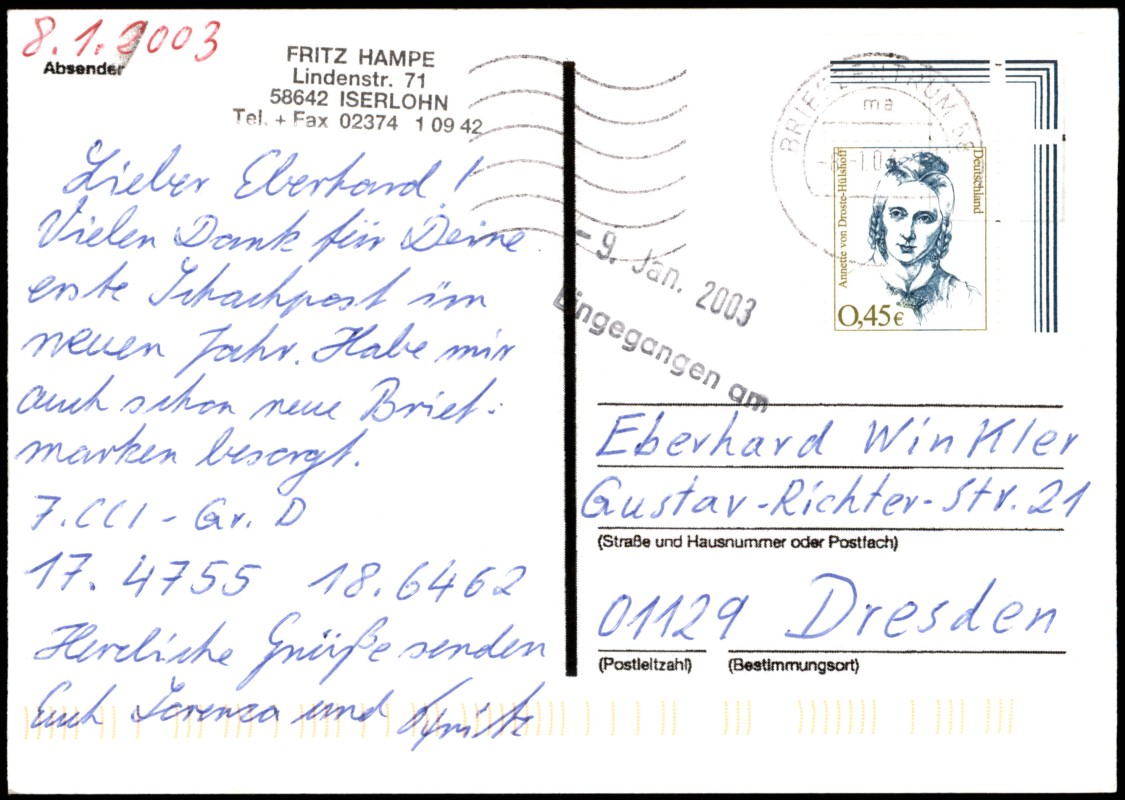 8.1.2003
Absender
FRITZ HAMPE
Lindenstr. 71
58642 ISERLOHN
Tel. + Fax 02374 1 09 42
Lieber Eberhard!
Vielen Dank für Deine
erste Schachpost im
neuen Jahr. Habe mir
auch schon neue Brief-
marken besorgt.
7.CCI - Gr. D
17. 4755 18. 6462
Herzliche Grüße senden
Euch Lorenza und Fritz
BRIEFZENTRUM 58
ma
Annette von Droste-Hülshoff
Deutschland
0,45€
- 9. Jan. 2003
Eingegangen am
Eberhard Winkler
Gustav-Richter-Str. 21
(Straße und Hausnummer oder Postfach)
01129 Dresden
(Postleitzahl) (Bestimmungsort)